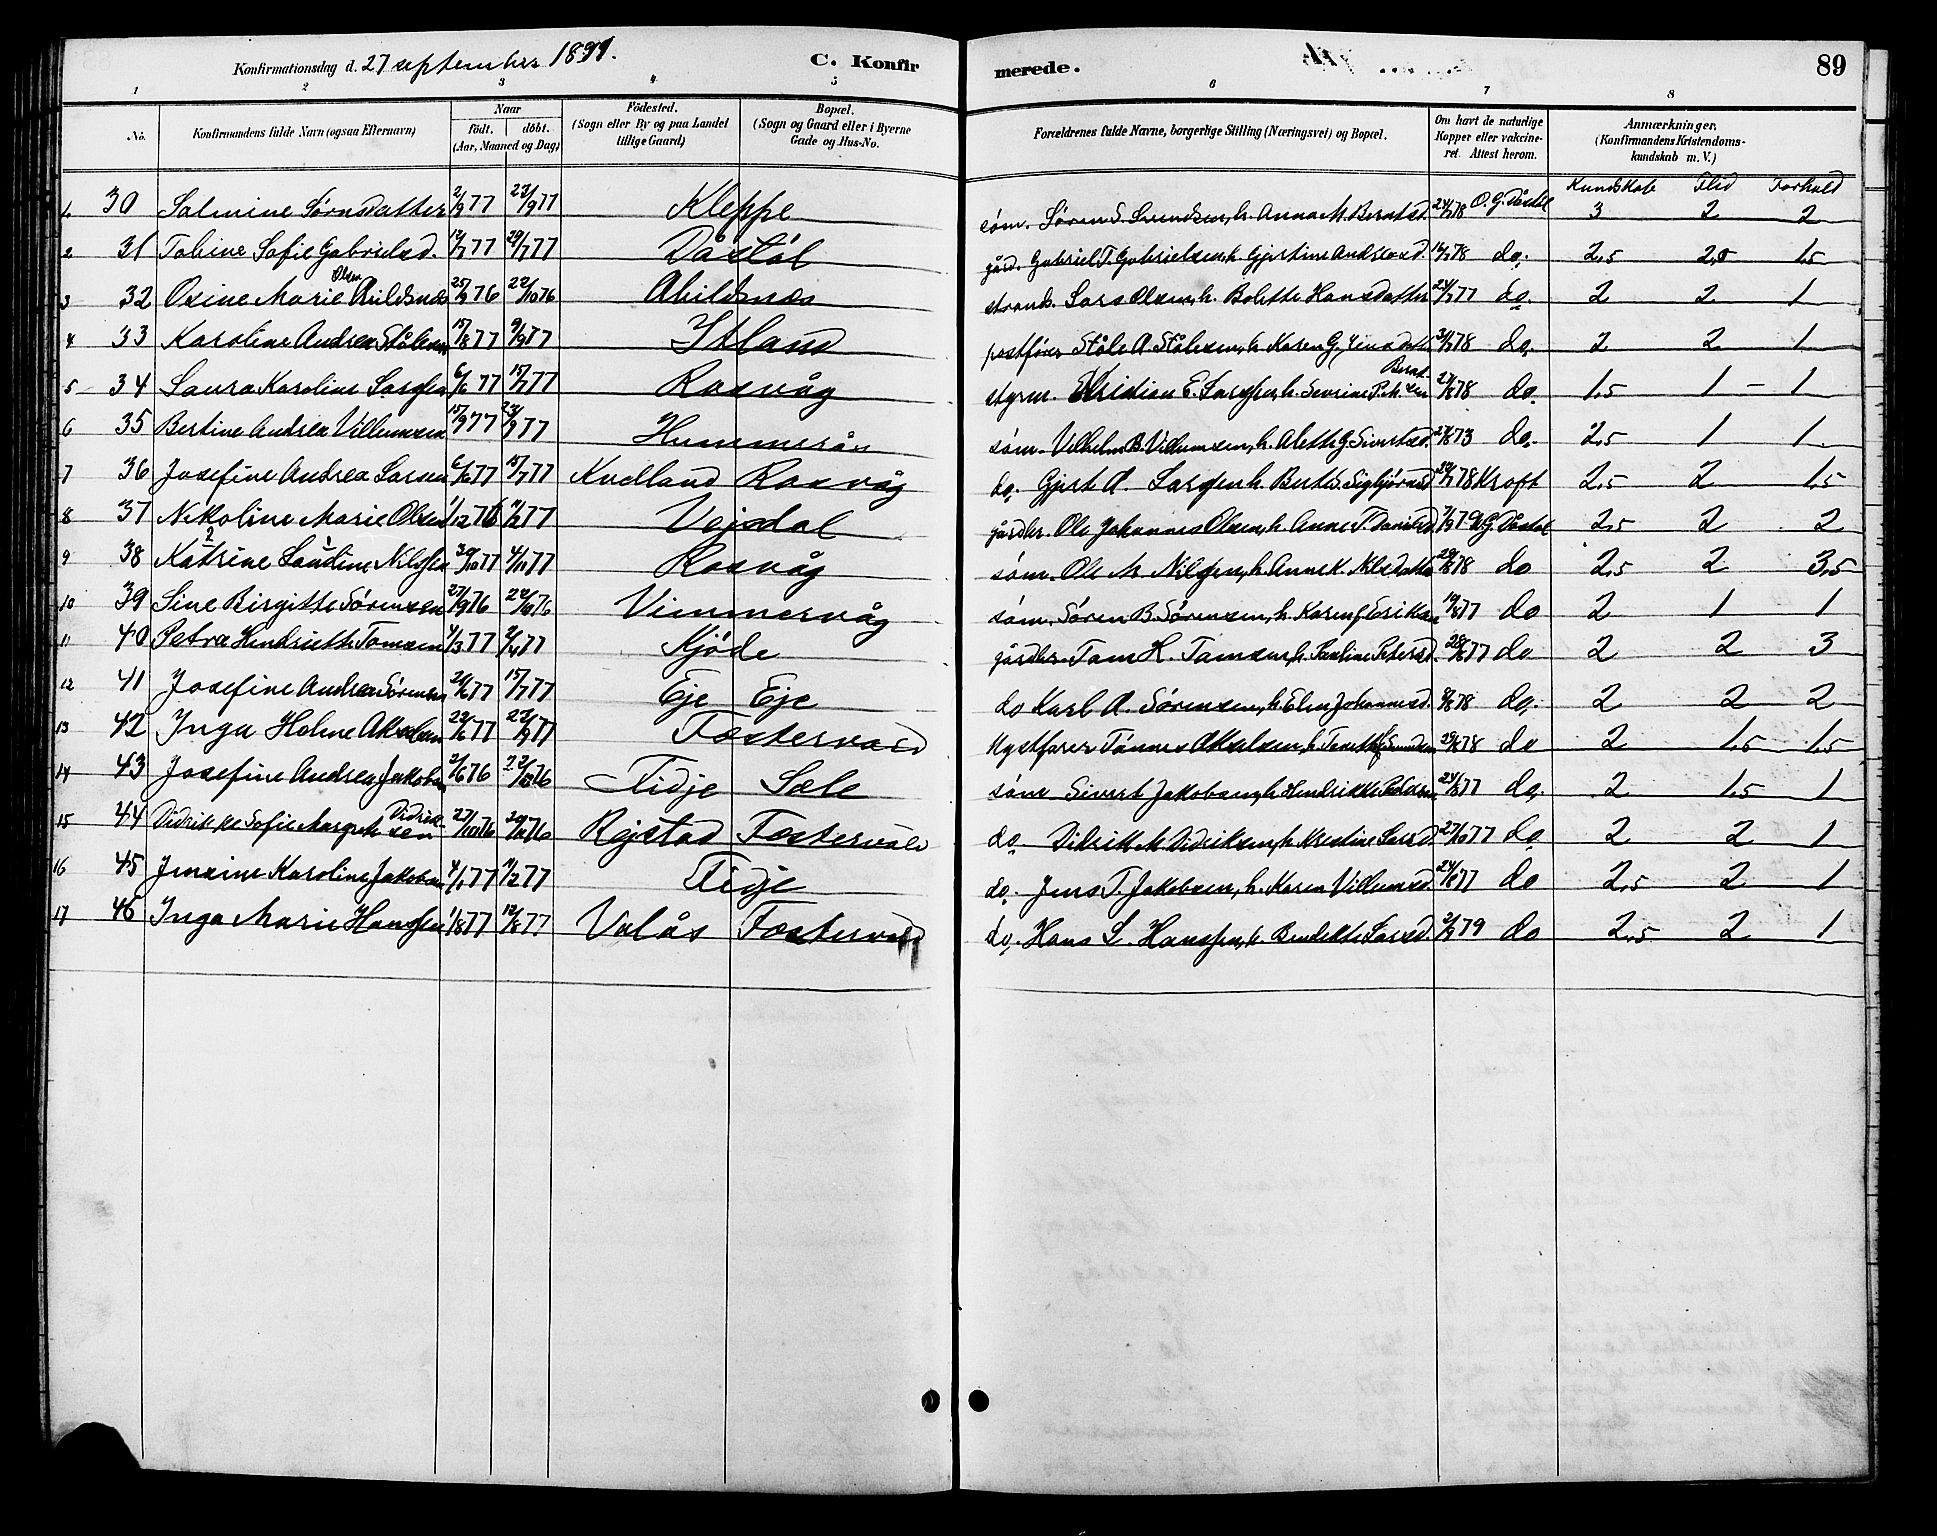 Konfirmationsdag d. 27 september 1891. C. Konfir merede. 89
1 2 3 4 5 6 7 8
No. Konfirmandens fulde Navn (ogsaa Efternavn) Naar födt. döbt. (Aar, Maaned og Dag) Födested. (Sogn eller By og paa Landet tillige Gaard) Bopæl. (Sogn og Gaard eller i Byerne Gade og Hus-No. Forældrenes fulde Navne, borgerlige Stilling (Næringsvei) og Bopæl. Om havt de naturlige Kopper eller vakcineret. Attest herom. Anmærkninger. (Konfirmandens Kristendomskundskab m. V.)
Kundskab Flid Forhold
1 30 Salmine Sørnsdatter 2/9 77 23/9 77 Kleppe søm. Søren S. Svendsen, h. Anna M. Berntsd. 24/7 78 O. G. Dåstöl 3 2 2
2 31 Tobine Sofie Gabrielsd. 12/7 77 29/7 77 Dåstöl gård. Gabriel T. Gabrielsen, h. Gjertine Andreasd. 16/7 78 do. 2,5 2,0 1,5
3 32 Osine Marie Olsen Abildsnæs 25/9 76 22/10 76 Abildsnæs strands. Lars Olsen, h. Bolette Hansdatter 24/7 77 do. 2 2 1
4 33 Karoline Andrea Stålesen 15/8 77 9/9 77 Itland postfører Ståle A. Stålesen, h. Karen G. 31/7 78 do. 2 2 1
5 34 Laura Karoline Larssen 6/6 77 15/7 77 Rasvåg styrm. Kristian E. Larssen, h. Sevrine P. M. Berntsen 27/8 78 do. 1,5 1 – 1
6 35 Bertine Andrea Villumsen 15/9 77 23/9 77 Hummerån søm. Vilhelm B. Villumsen, h. Aleth G. Sivertsd. 27/8 73 do. 2,5 1 1.
7 36 Josefine Andrea Larsen 6/6 77 15/7 77 Kvelland Rasvåg do. Gjert A. Larssen h. Berte S. Sigbjørnsd 29/7 78 Kroft 2,5 2 1,5
8 37 Nikoline Marie Olsen 1/12 76 11/2 77 Vejsdal gårdbr. Ole Johannes Olsen, h. Anne T. Danielsd. 7/9 79 O. G. Dåstöl 2,5 2 2
9 38 Katrine Laudine Nilssen 30/10 77 4/11 77 Rasvåg søm. Ole M. Nilssen, h. Anne K. Nilsdatter 29/8 78 do 2,5 2 3,5
10 39 Sine Birgitte Sørensen 27/9 76 22/10 76 Vimmervåg søm. Søren B. Sørensen, h. Karen 19/8 77 do 2 1 1
11 40 Petra Hendriette Tomsen 4/3 77 2/4 77 Kjøde gårdbr. Tom H. Tomsen, h. Pauline Petersd. 28/8 77 do 2 2 3
12 41 Josefine Andrea Sørensen 20/6 77 15/7 77 Eje Eje do Karl A. Sørensen, h. Elen Johannesd. 8/8 78 do. 2 2 2
13 42 Inga Helene Akselsen 22/6 77 22/7 77 Fostervold Kystfarer Tønnes Akselsen, h. 29/8 78 do 2 1,5 1,5
14 43 Josefine Andrea Jakobsen 2/6 76 22/10 76 Tidje Sæle søm Sivert Jakobsen, h. Hendrikke Pedersen 24/8 77 do. 2 1,5 1
15 44 Didrikke Sofie Margrete Didriksen 27/10 76 29/10 76 Rejstad Fostervold do. Didrik M. Didriksen, h. Kristine Larsd. 27/10 77 do 2 2 1
16 45 Jensine Karoline Jakobsen 4/1 77 11/2 77 Tidje do. Jens T. Jakobsen, h. Karen Villumsd. 24/8 77 do 2,5 2 1
17 46 Inga Marie Hanssen 1/8 77 12/8 77 Valås Fostervold do. Hans L. Hanssen, h. Bendikte Larsd. 2/9 79 do 2,5 2 1